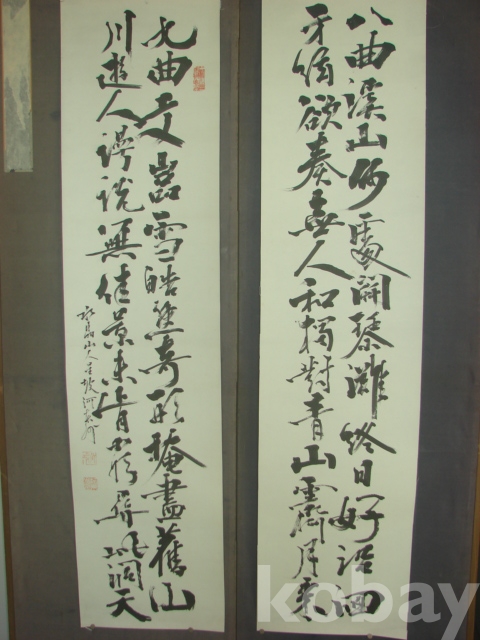 八曲溪山何處開琴灘終日好沿洄
牙絃欲奏無人和獨對青山霽月來
九曲文巖雪皓然奇形掩盡舊山
川遊人謾說無佳景未肯窮尋此洞天
山人星坡河東州
kobay